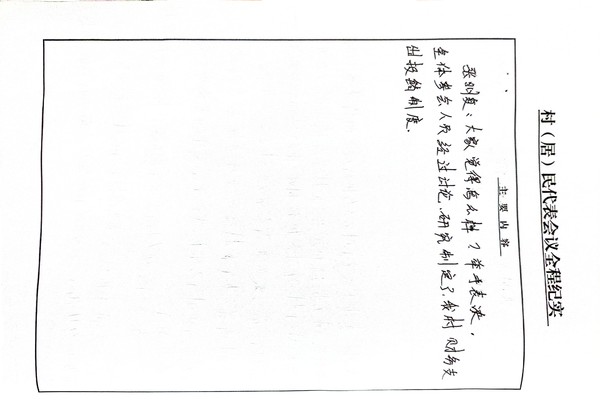 村（居）民代表会议全程纪实
主要内容
张则良：大家觉得怎么样？举手表决，
全体参会人员经过讨论、研究制定了我村财务支
出报销制度.